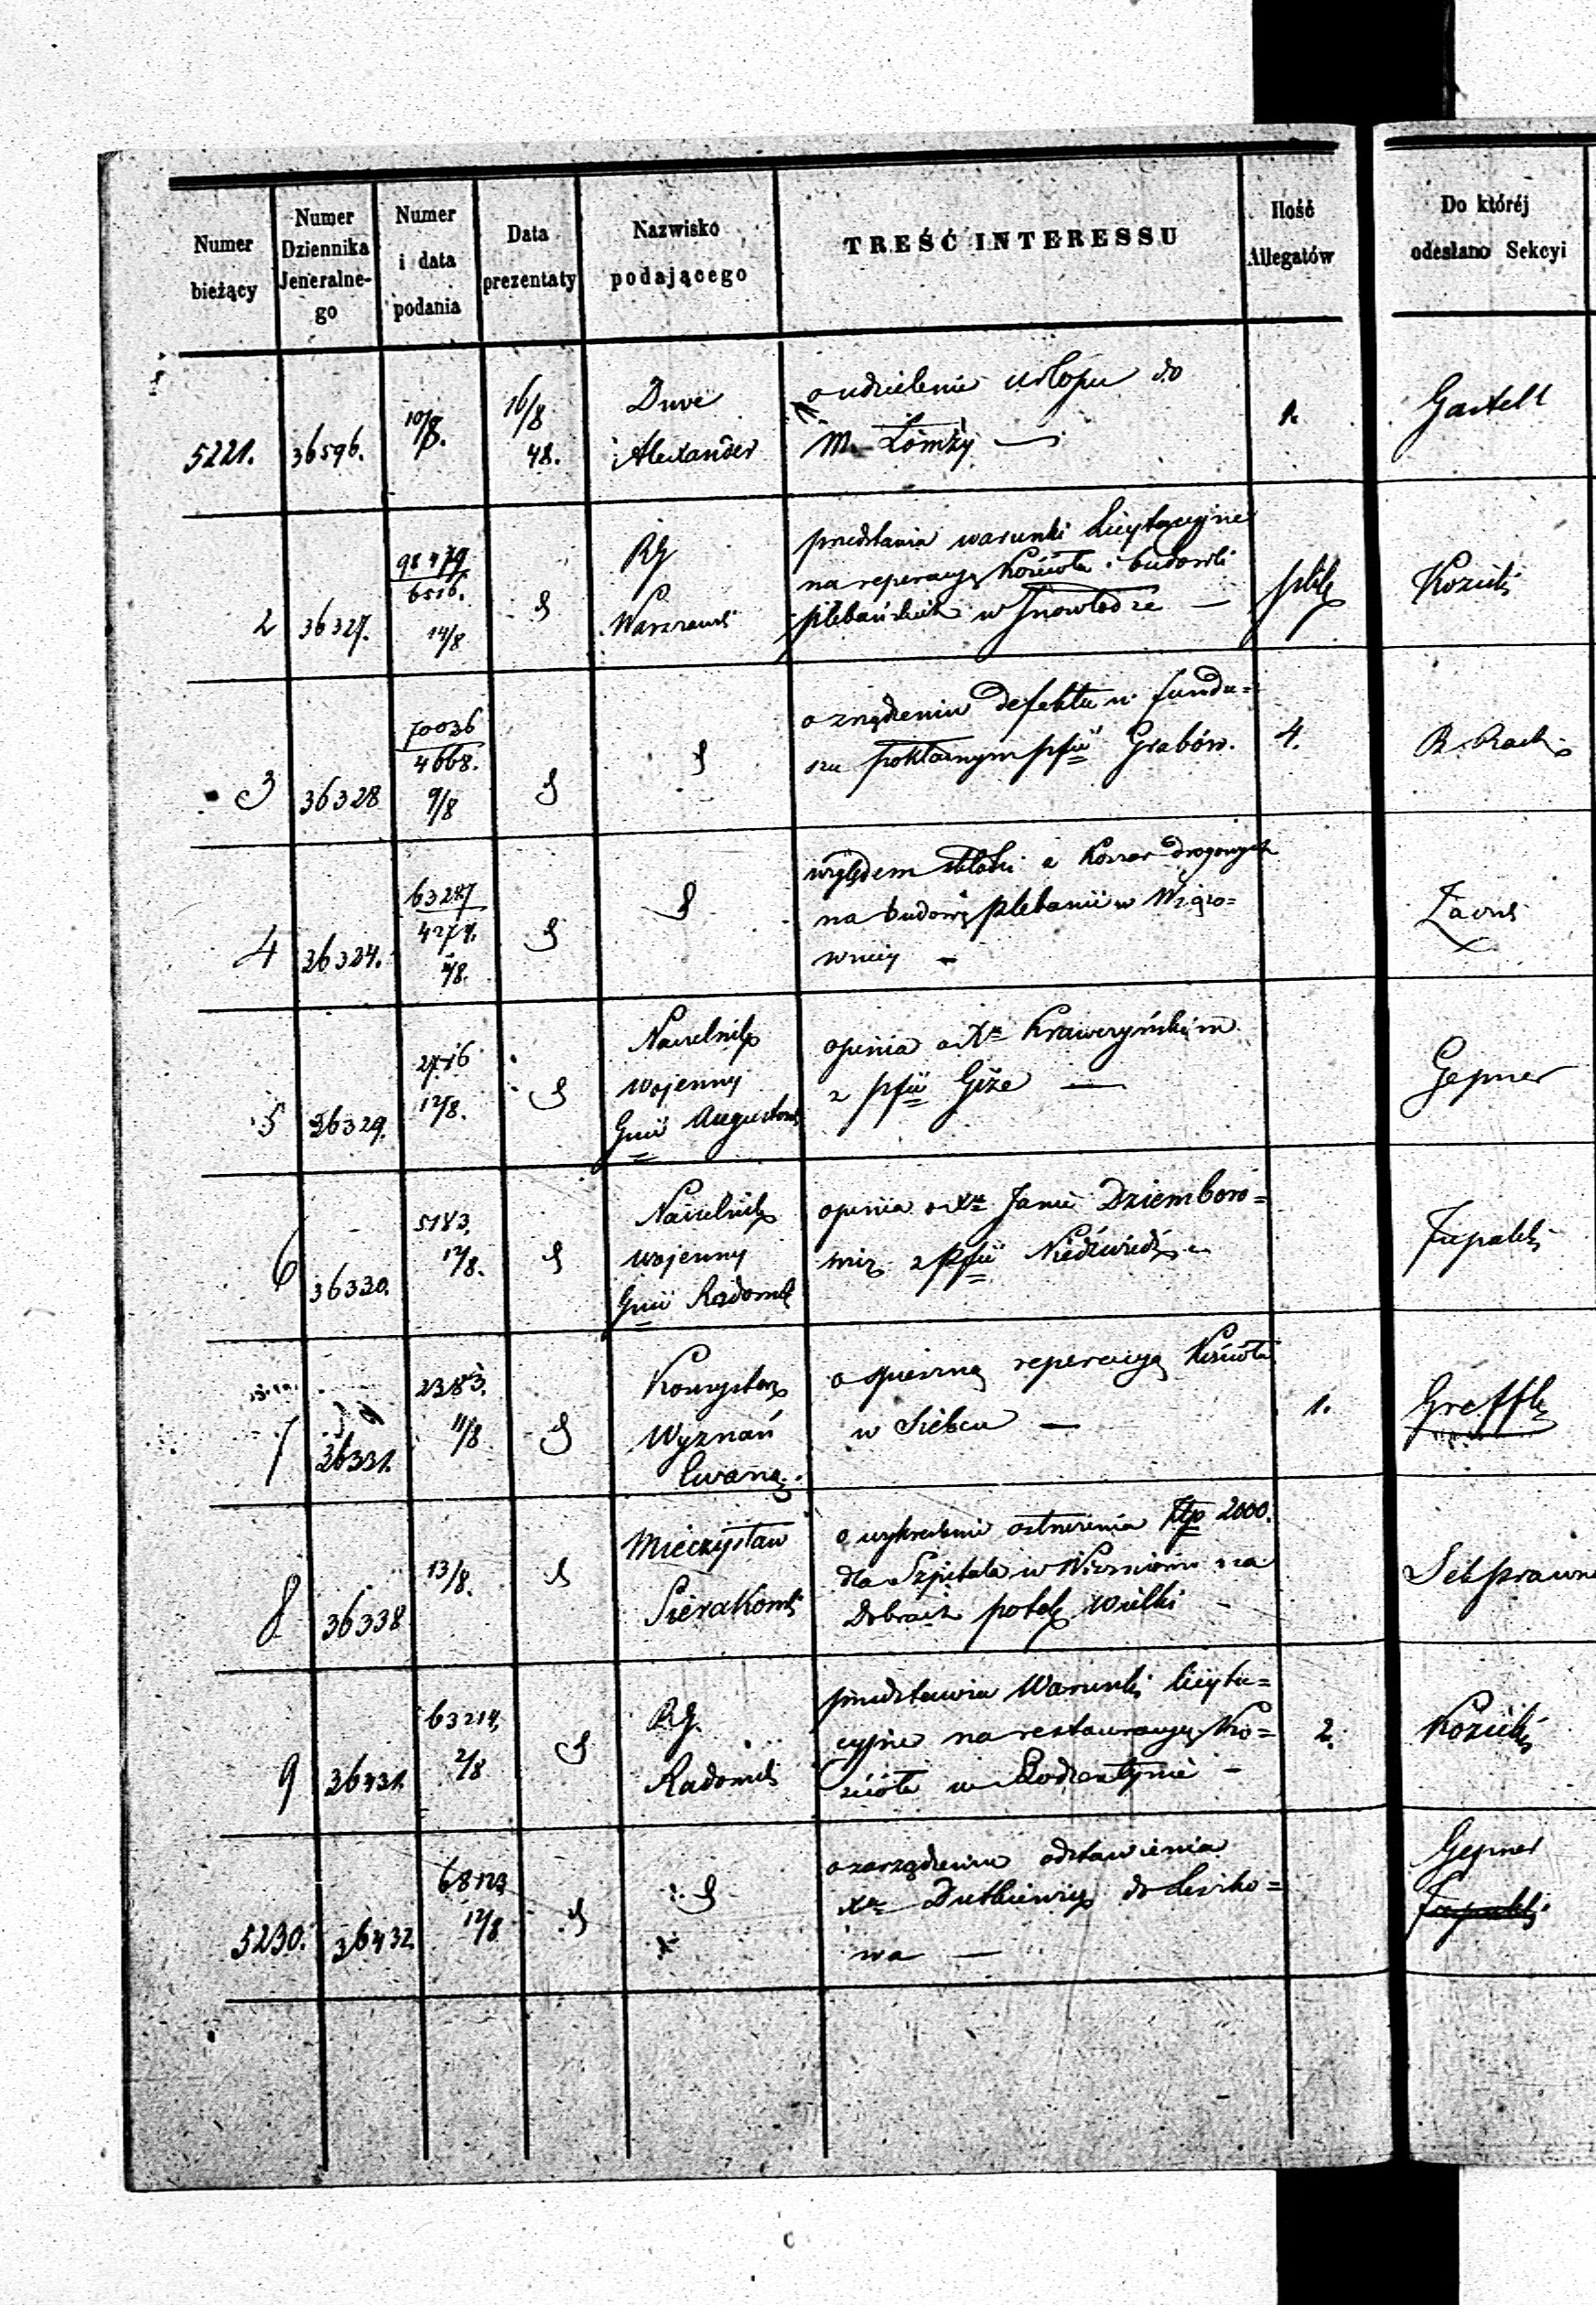 Numer bieżący | Numer Dziennika Jeneralnego | Numer i data podania | Data prezentaty | Nazwisko podającego | TREŚĆ INTERESSU | Ilość Allegatów | Do któréj odesłano Sekcyi
5221. 36596. 10/8. 16/8 48.
Duve
Alexander
o udzielenie urlopu do
M. Łomży —
1.
Gartell
2 36327. 98479 6516. 14/8
RG
Warszawsk
przedstawia warunki licytacyjne
na reperacyę Kościoła i budowli
plebańskich w Inowłodze —
plik
Kozick
3 36328 70036 4668. 9/8
o zrządzeniu defektu w fundu=
szu pokładnym pfii Grabów.
4.
4 36324. 63287 4274. 4/8.
względem składki a Kossar drogowych
na budowę plebanii w Wiązo=
wnicy —
5 36329. 2776 12/8.
Naczelnik
wojenny
Gnii Augustows
opinia o Xu Krawczyńskim
z pfii Giże —
Gepner
6 36330. 5183. 12/8.
Naczelnik
wojenny
Gnii Radomsk
opinia o Xu Janie Dziemboro=
wicz z pfii Niedźwiedź
7 36331. 2383. 11/8
Konsystorz
Wyznań
Ewang.
o spieszną reperacyę Kościoła
w Sielcu —
1.
Greffk
8 36338 13/8.
Mieczysław
Sierakowsk
o wykreślenie ostrzeżenia Złp 2000.
dla Szpitala w na
Dobrach potok wielki
Sek prawna
9 36431. 63214. 2/8
RG.
Radomsk
przedstawia Warunki licyta=
cyjne na restauracyę Ko=
ścioła w Bodzentynie —
2.
Kozick
5230. 36432. 68123 12/8
o zarządzeniu odstawienia
Xa Dutkiewicz do Liszko=
wa —
Gepner